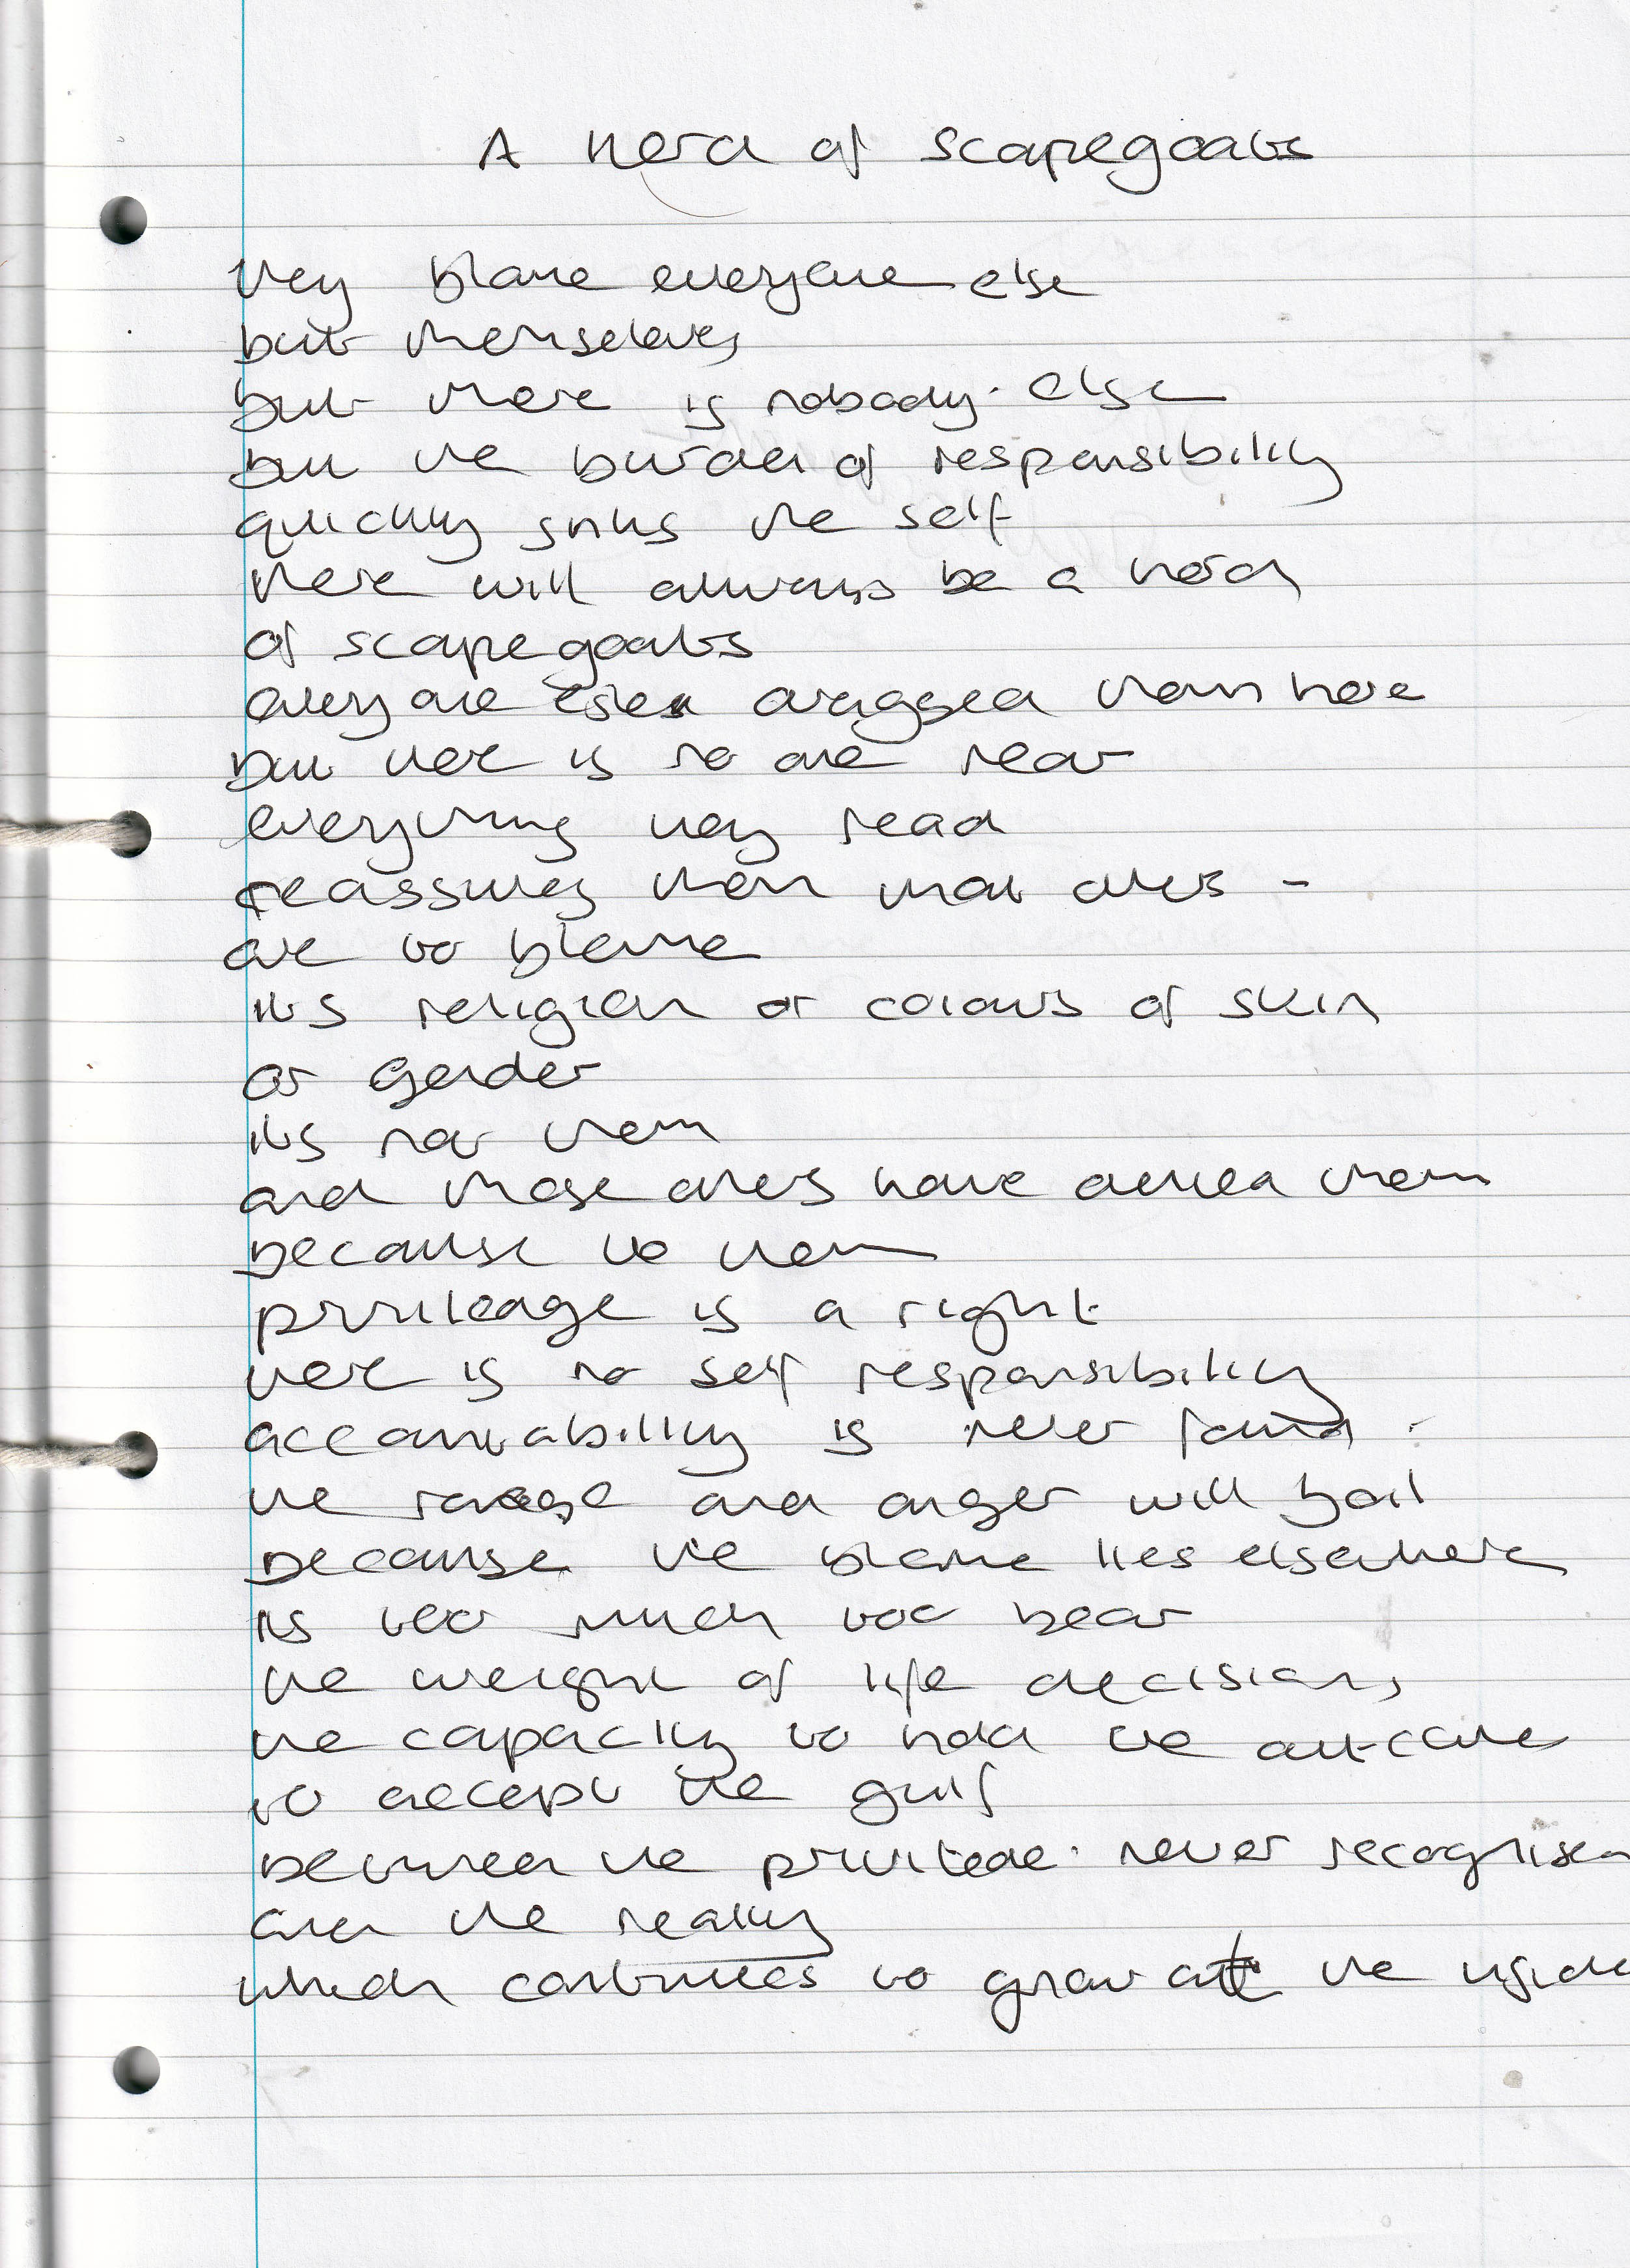 A herd of scapegoats
they blame everyone else
but themselves
but there is nobody else
but the burden of responsibility
quickly sinks the self
there will always be a herd
of scapegoats
everyone else dragged them here
but there is no one near
everything they read
reassures them that others -
are to blame
its religion or colours of skin
or gender
its not them
and those others have denied them
because to them
privileage is a right
there is no self responsibility
accountability is never found
the ravage and anger will boil
because the blame lies elsewhere
its too much too bear
the weight of life decisions
the capacity to hold the outcome
to accept the gulf
between the privilede never recognised
and the reality
which continues to gnaw at the